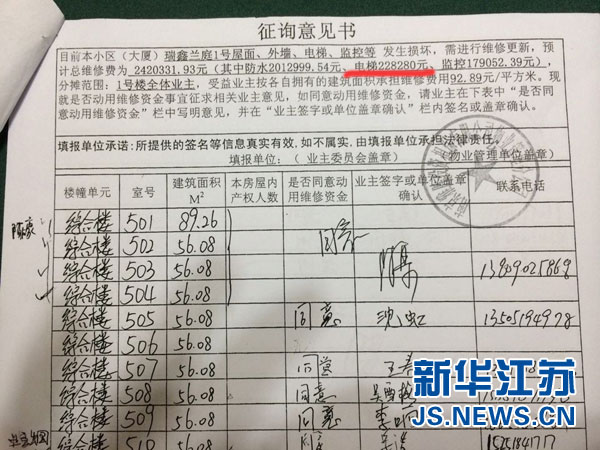 征询意见书
目前本小区（大厦）瑞鑫兰庭1号屋面、外墙、电梯、监控等 发生损坏，需进行维修更新，预
计总维修费为 2420331.93元（其中防水2012999.54元、电梯228280元、监控179052.39元），
分摊范围：1号楼全体业主，受益业主按各自拥有的建筑面积承担维修费用92.89元/平方米。现
就是否动用维修资金事宜征求相关业主意见，如同意动用维修资金，请业主在下表中“是否同
意动用维修资金”栏中写明意见，并在“业主签字或盖章确认”栏内签名或盖章确认。
填报单位承诺：所提供的签名等信息真实有效，如不属实，由填报单位承担法律责任。
填报单位：（ 业主委员会盖章） （物业管理单位盖章）
楼幢单元 室号 建筑面积M² 本房屋内产权人数 是否同意动用维修资金 业主签字或单位盖章确认 联系电话
综合楼 501 89.26
综合楼 502 56.08 同意
综合楼 503 56.08 13809025868
综合楼 504 56.08
综合楼 505 56.08 同意 沈虹 13505194978
综合楼 506 56.08
综合楼 507 56.08 同意
综合楼 508 56.08 同意
综合楼 509 56.08 同意
综合楼 510 56.08 同意
新华江苏
JS.NEWS.CN